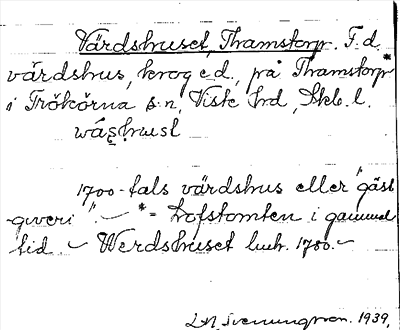 Värdshuset, Thamstorp. F.d.
värdshus, krog e.d., på Thamstorp*
i Trökörna s:n, Viste hd, Skb. l.
1700-tals värdshus eller "gäst-
giveri". - * = hofstomten i gammal
tid - Werdshuset 1780. -
Svenungsson. 1939.